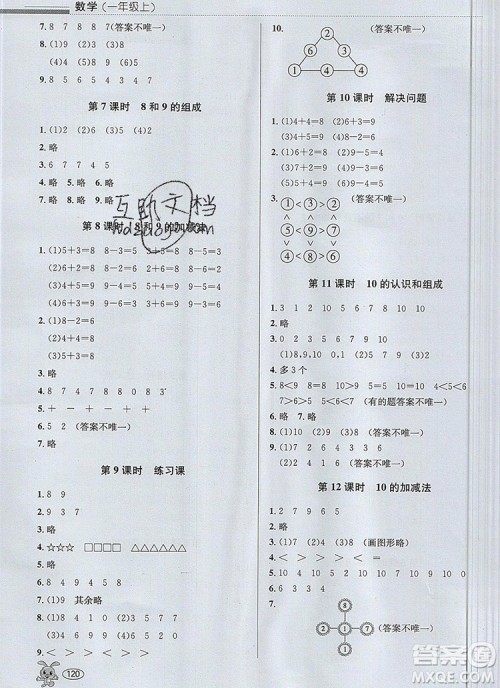 数学(一年级上)
7. 8 7 8 8 7 (答案不唯一)
8. (1)9 (2)8 (3)7
(4)8 (5)9 (6)5
9. 8
第 7 课时 8 和 9 的组成
1. (1)2 (2)6 (3)5
2. 略
3. 6 7 7 4 5
4. 略 5. 略 6. 略
互助文档
第 8 课时 8 和 9 的加减法
1. (1)5+3=8 8-3=5 3+5=8
8-5=3
(2)6+3=9 9-3=6 3+6=9
9-6=3
2. (1)8-2=6
(2)4+4=8
(3)5+3=8
3. 略
4. 8 7 4 7 8 8 0 8 3
5. + - + - + +
6. 5 2 (答案不唯一)
7. 略
第 9 课时 练习课
1. 8 9
2. 9 3 7
3. 略
4. ☆☆☆ □□□□ △△△△△△
5. 略
6. 9 5 4 5 8 0
7. (1)9 其余略
8. (1)9 (2)3 (3)4 (4)8
9. 略
120
10.
1
6 3
1 4 4
(答案不唯一)
第 10 课时 解决问题
1. (1)4+4=8 (2)6+3=9
(3)5+4=9 (4)3+6=9
2. (1)6+2=8 (2)5+2=7
(3)6+2=8 (4)5+4=9
3. ①<②<③
∧ ∧ ∧
④<⑤<⑥
∨ ∨ ∨
③<②<⑨
(答案不唯一)
第 11 课时 10 的认识和组成
1. 3 1 2 10 7 5 8
2. 略
3. (1)8、9、10 (2)0、1 (3)9
4. 多 3 个
5. 8<9 8>7 3<8 6<8
7>6 7>5 (有的题答案不唯一)
6. 略 7. 略 8. 0 9. 略
10. (2) 4 1 6 (答案不唯一)
第 12 课时 10 的加减法
1. 9 1 9 1
2. 7 3 7 3
3. (1)7 (2)7 (3)8 (画图形略)
4. < > > > = <
5. 10 4 10 10 9 10 4 10 0
6. < > < > > <
7.
8
2 1 7
(答案不唯一)
答案圈